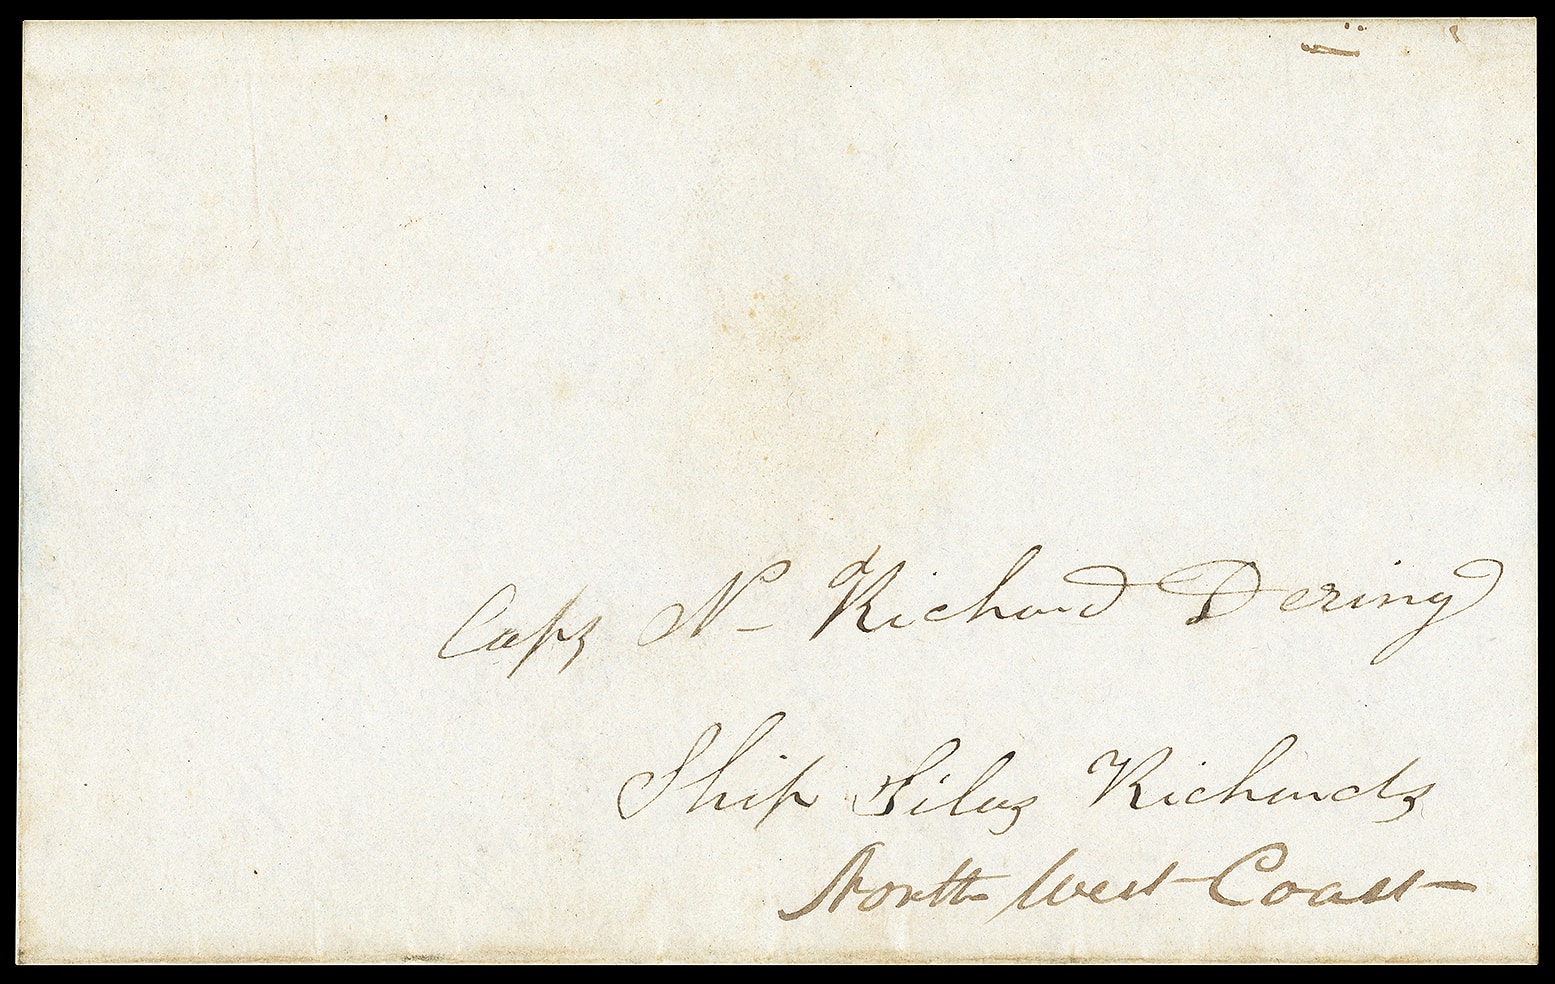 Capt N— Richard Dering
Ship Silas Richards
North West Coast